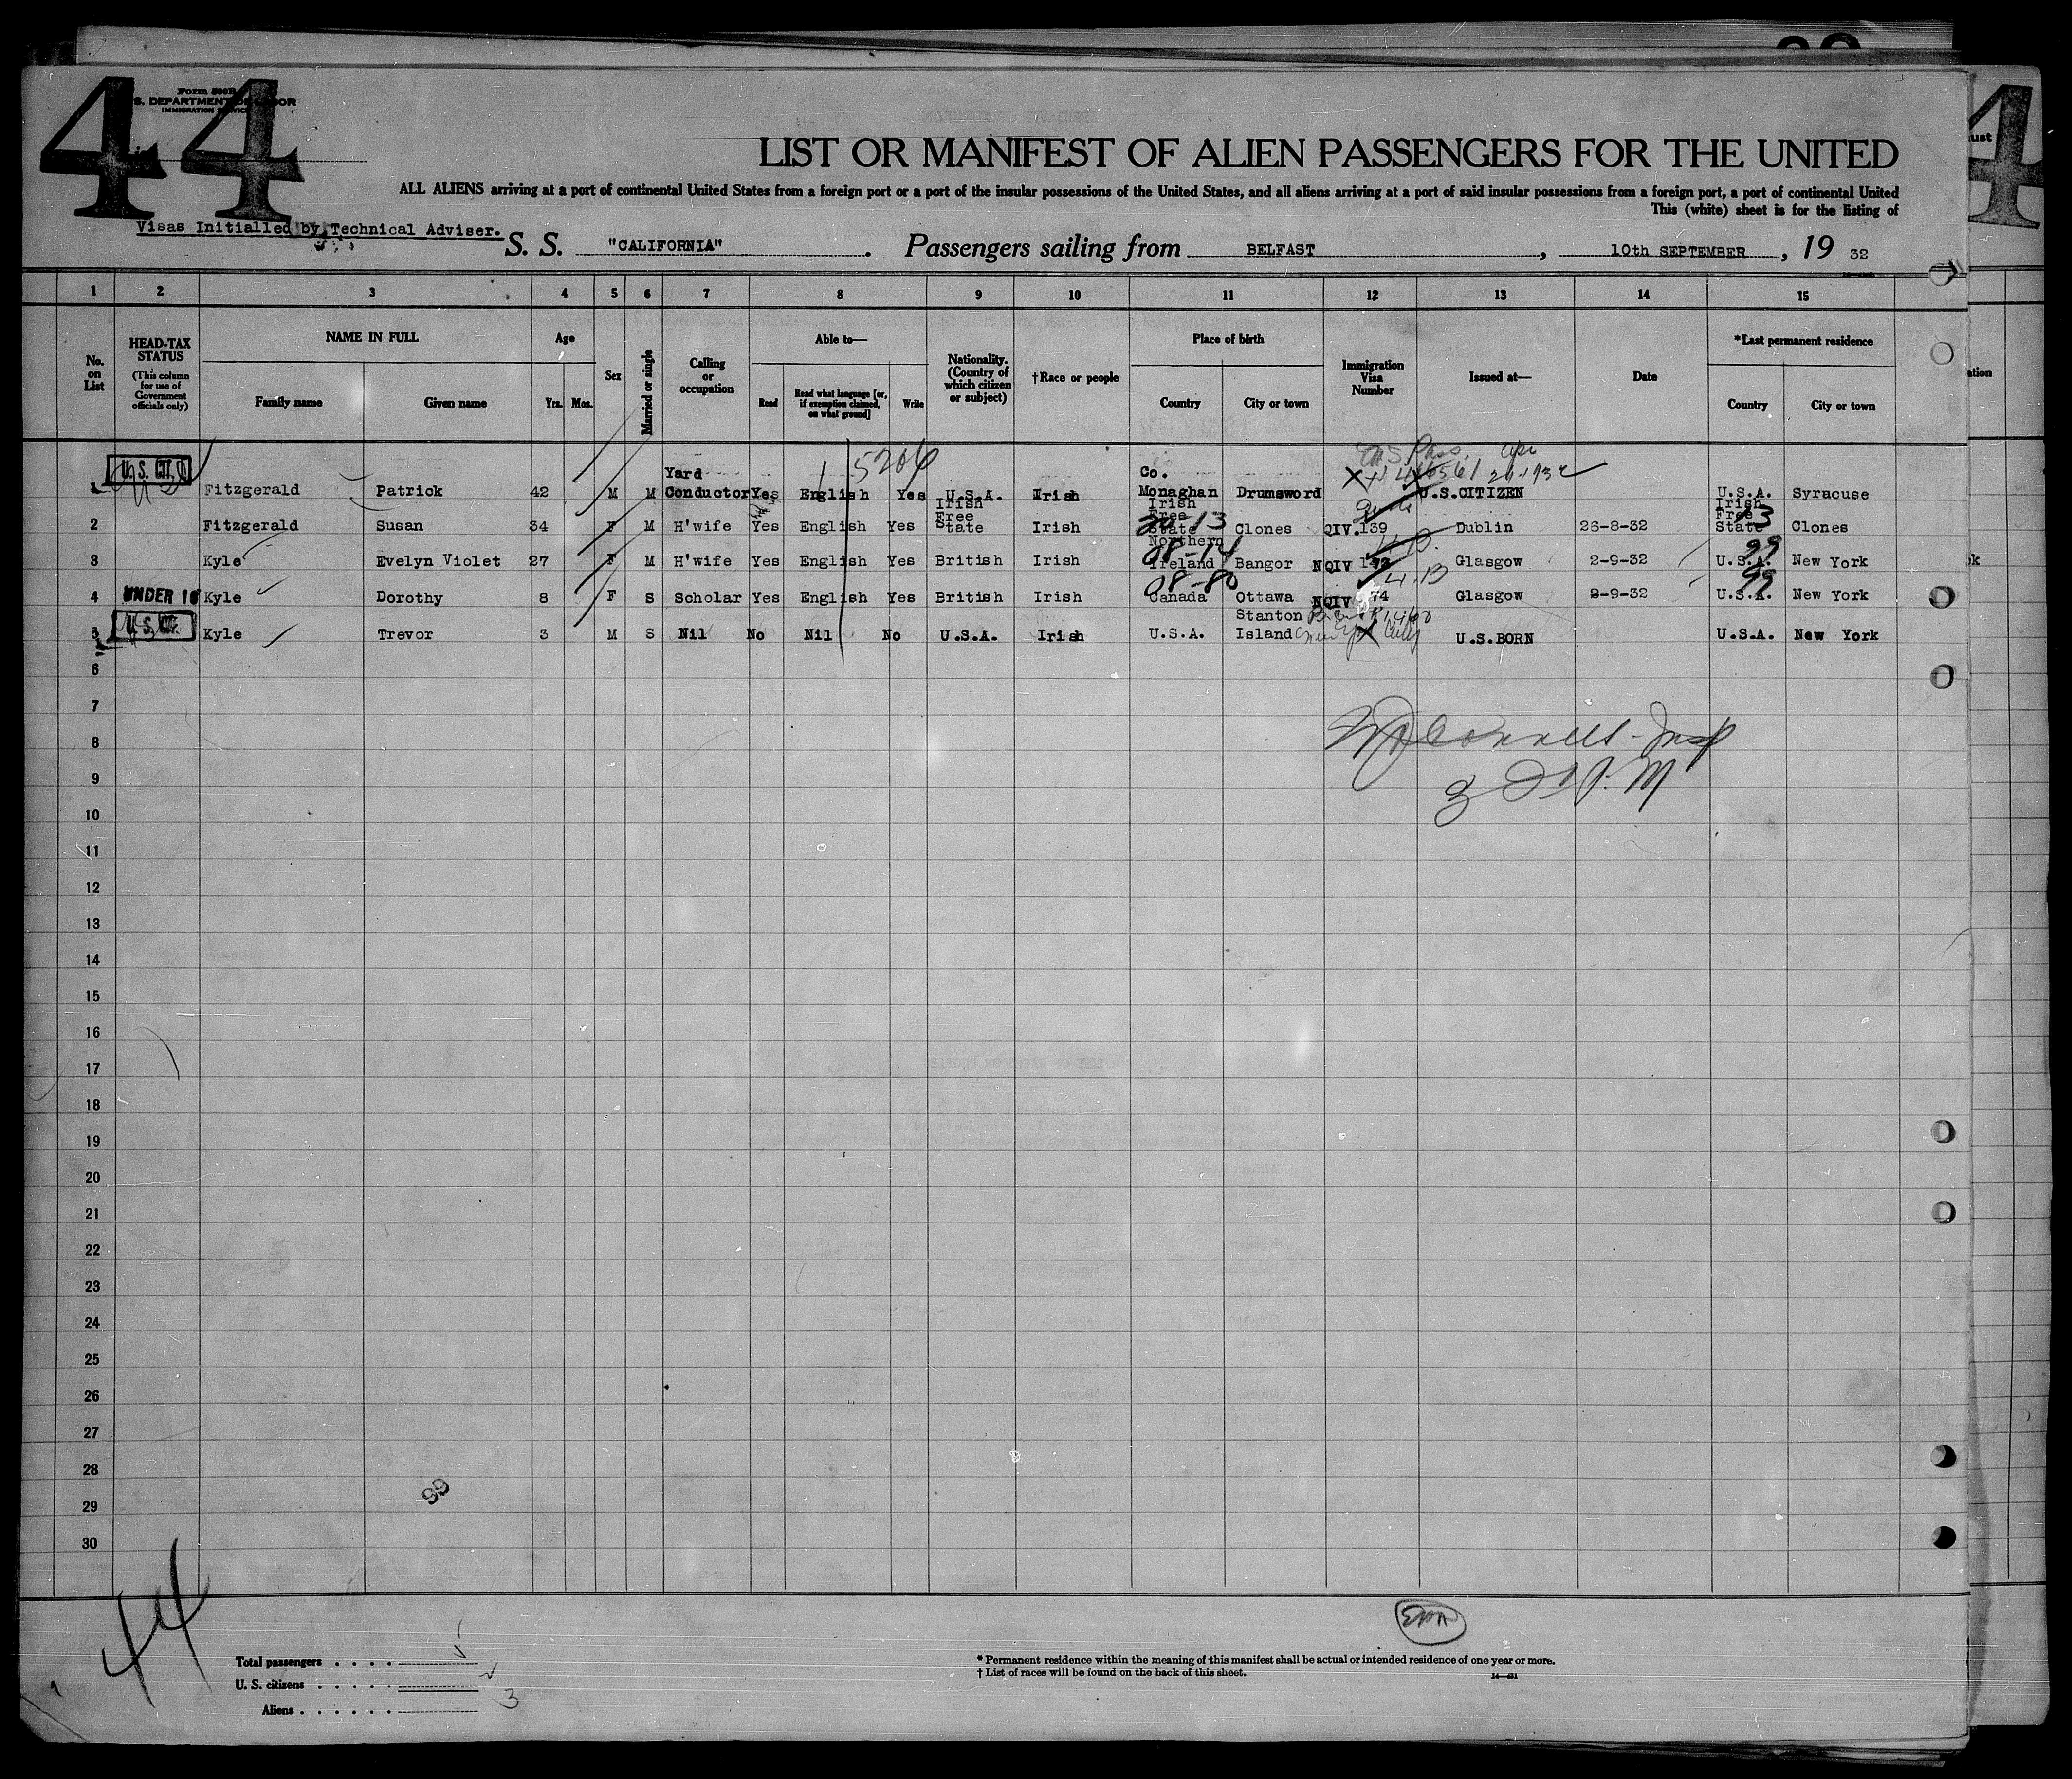 44
Form 500B
S. DEPARTMENT OF LABOR
IMMIGRATION SERVICE
LIST OR MANIFEST OF ALIEN PASSENGERS FOR THE UNITED
ALL ALIENS arriving at a port of continental United States from a foreign port or a port of the insular possessions of the United States, and all aliens arriving at a port of said insular possessions from a foreign port, a port of continental United
This (white) sheet is for the listing of
Visas Initialled by Technical Adviser.
S. S. "CALIFORNIA". Passengers sailing from BELFAST, 10th SEPTEMBER, 19 32
1 2 3 4 5 6 7 8 9 10 11 12 13 14 15
No. on List
HEAD-TAX STATUS
(This column for use of Government officials only)
NAME IN FULL
Family name Given name
Age
Yrs. Mos.
Sex
Married or single
Calling or occupation
Able to—
Read Read what language [or, if exemption claimed, on what ground] Write
Nationality. (Country of which citizen or subject)
†Race or people
Place of birth
Country City or town
Immigration Visa Number
Issued at—
Date
*Last permanent residence
Country City or town
U.S. CIT.
5206
1 Fitzgerald Patrick 42 M M Yard Conductor Yes English Yes U.S.A. Irish Co. Monaghan Drumsword U.S.CITIZEN U.S.A. Syracuse
2 Fitzgerald Susan 34 F M H'wife Yes English Yes Irish Free State Irish Irish Free State Clones QIV.139 Dublin 26-8-32 Irish Free State Clones
20-13 13
3 Kyle Evelyn Violet 27 F M H'wife Yes English Yes British Irish Northern Ireland Bangor NQIV Glasgow 2-9-32 U.S.A. New York
08-14 99
4 UNDER 16 Kyle Dorothy 8 F S Scholar Yes English Yes British Irish Canada Ottawa NQIV 74 Glasgow 2-9-32 U.S.A. New York
08-80 4.B 99
5 U.S. CIT. Kyle Trevor 3 M S Nil No Nil No U.S.A. Irish U.S.A. Stanton Island U.S.BORN U.S.A. New York
6
7
8
9
10
11
12
13
14
15
16
17
18
19
20
21
22
23
24
25
26
27
28
29
30
99
44
Total passengers 5
U. S. citizens 2
Aliens 3
* Permanent residence within the meaning of this manifest shall be actual or intended residence of one year or more.
† List of races will be found on the back of this sheet.